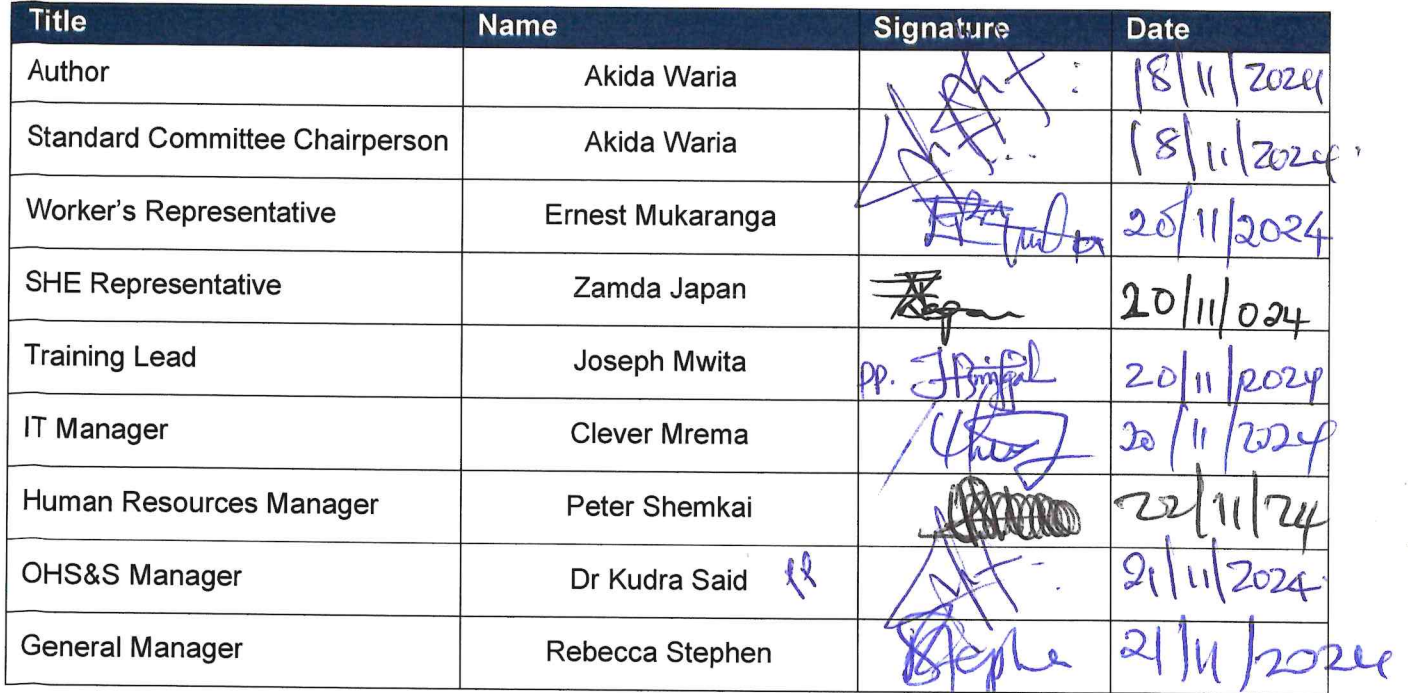 Title Name Signature Date
Author Akida Waria 18/11/2024
Standard Committee Chairperson Akida Waria 18/11/2024
Worker's Representative Ernest Mukaranga 20/11/2024
SHE Representative Zamda Japan 20/11/024
Training Lead Joseph Mwita pp. 20/11/2024
IT Manager Clever Mrema 20/11/2024
Human Resources Manager Peter Shemkai 22/11/24
OHS&S Manager Dr Kudra Said pp 21/11/2024
General Manager Rebecca Stephen 21/11/2024